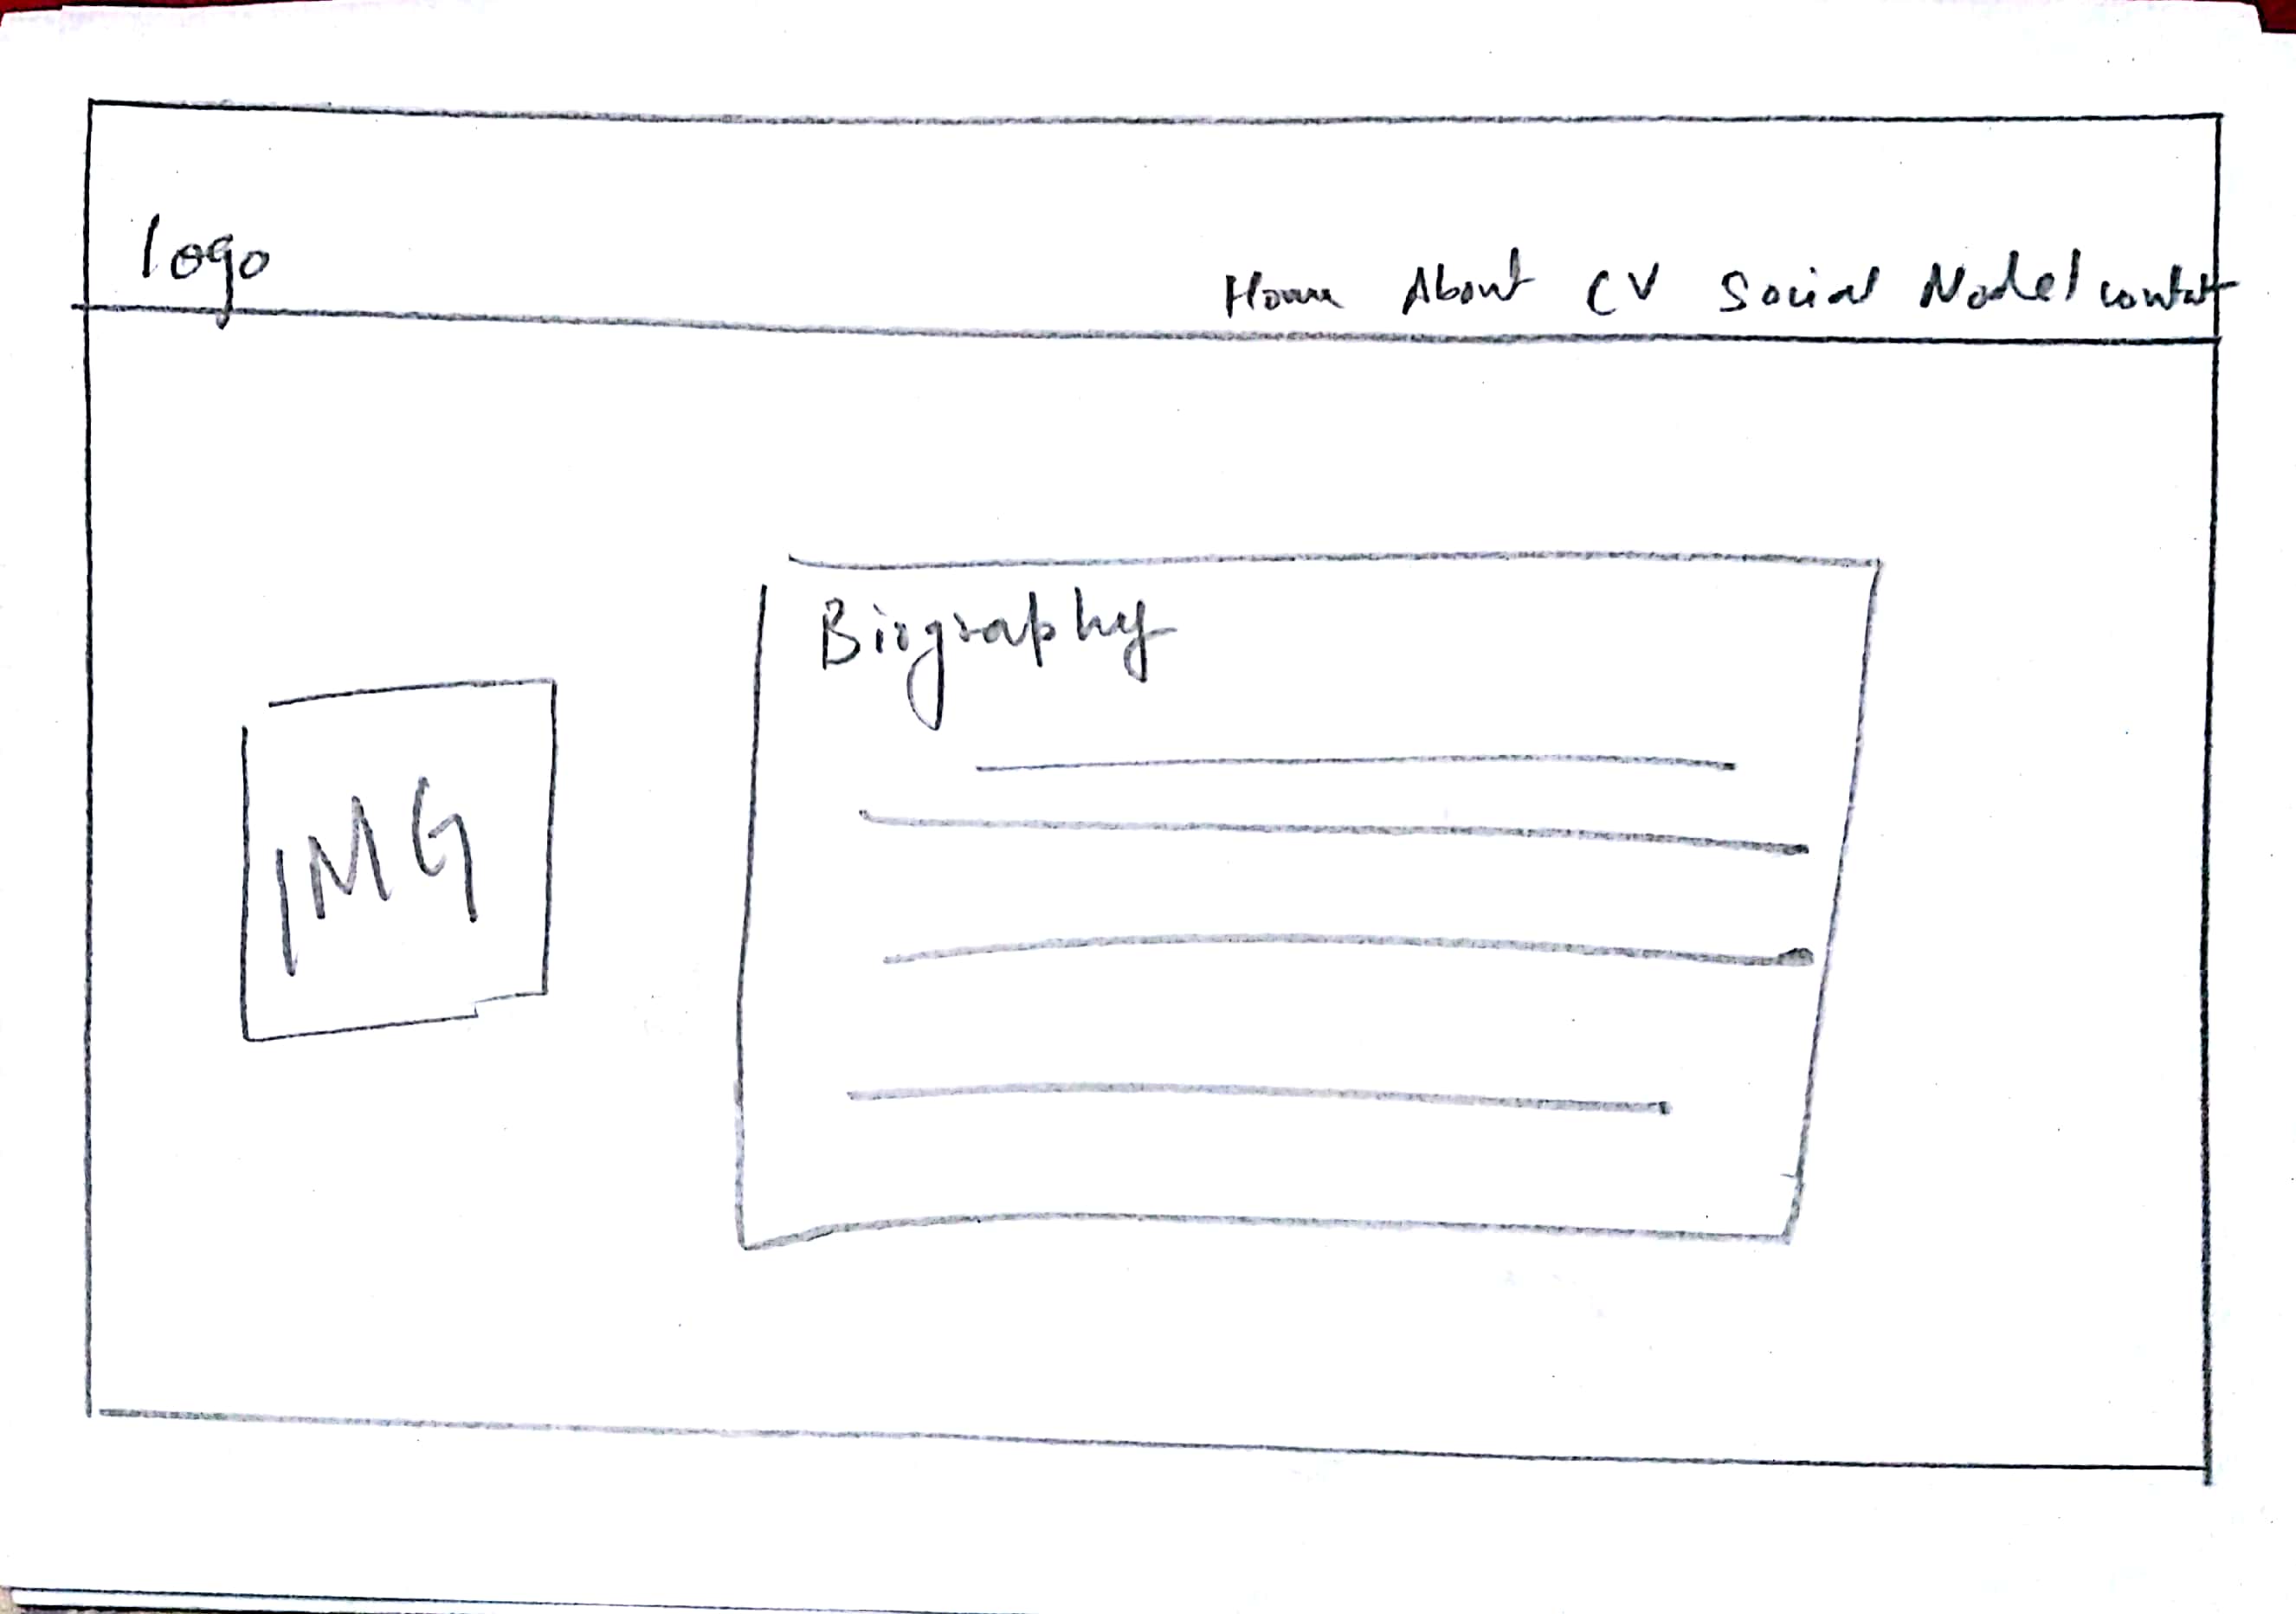 logo
Home About CV Social Model contact
Biography
IMG